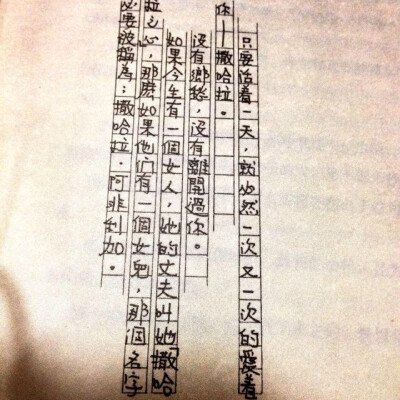 只要活着一天，就必然一次又一次的愛着
你——撒哈拉。
沒有鄉愁，沒有離開過你。
如果今生有一個女人，她的丈夫叫她「撒哈
拉之心」，那麼如果他們有一個女兒，那個名字
必要被稱為：撒哈拉·阿非利加。